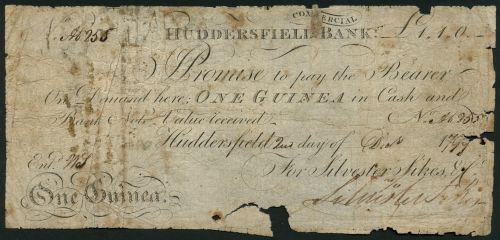 COMMERCIAL
No 255 HUDDERSFIELD BANK. £1.1.0.
I Promise to pay the Bearer
On Demand here, ONE GUINEA in Cash and
Bank Notes Value received No. 255
Huddersfield 2nd day of Decr 1797
Entd. For Silvester Sikes, &
One Guinea.